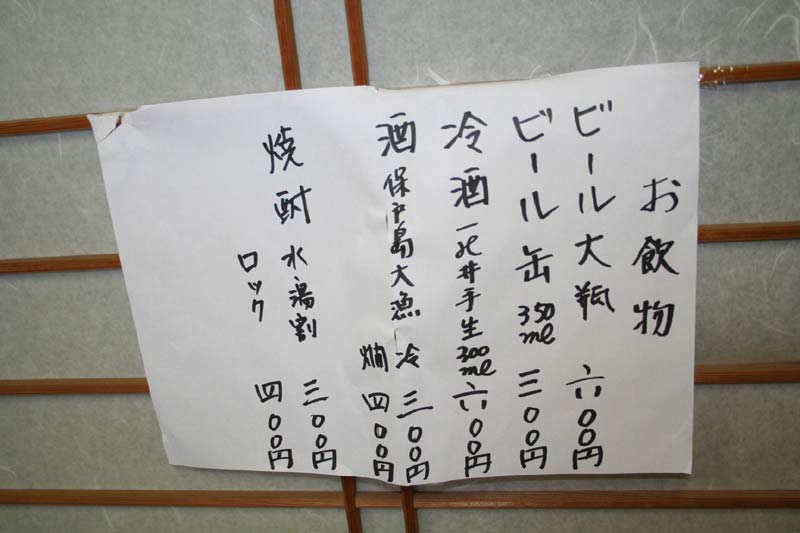 お飲物
ビール大瓶 六〇〇円
ビール缶 350ml 三〇〇円
冷酒 井手生 300ml 六〇〇円
酒 保戸島大漁 冷 三〇〇円
燗 四〇〇円
焼酎 水、湯割 三〇〇円
ロック 四〇〇円